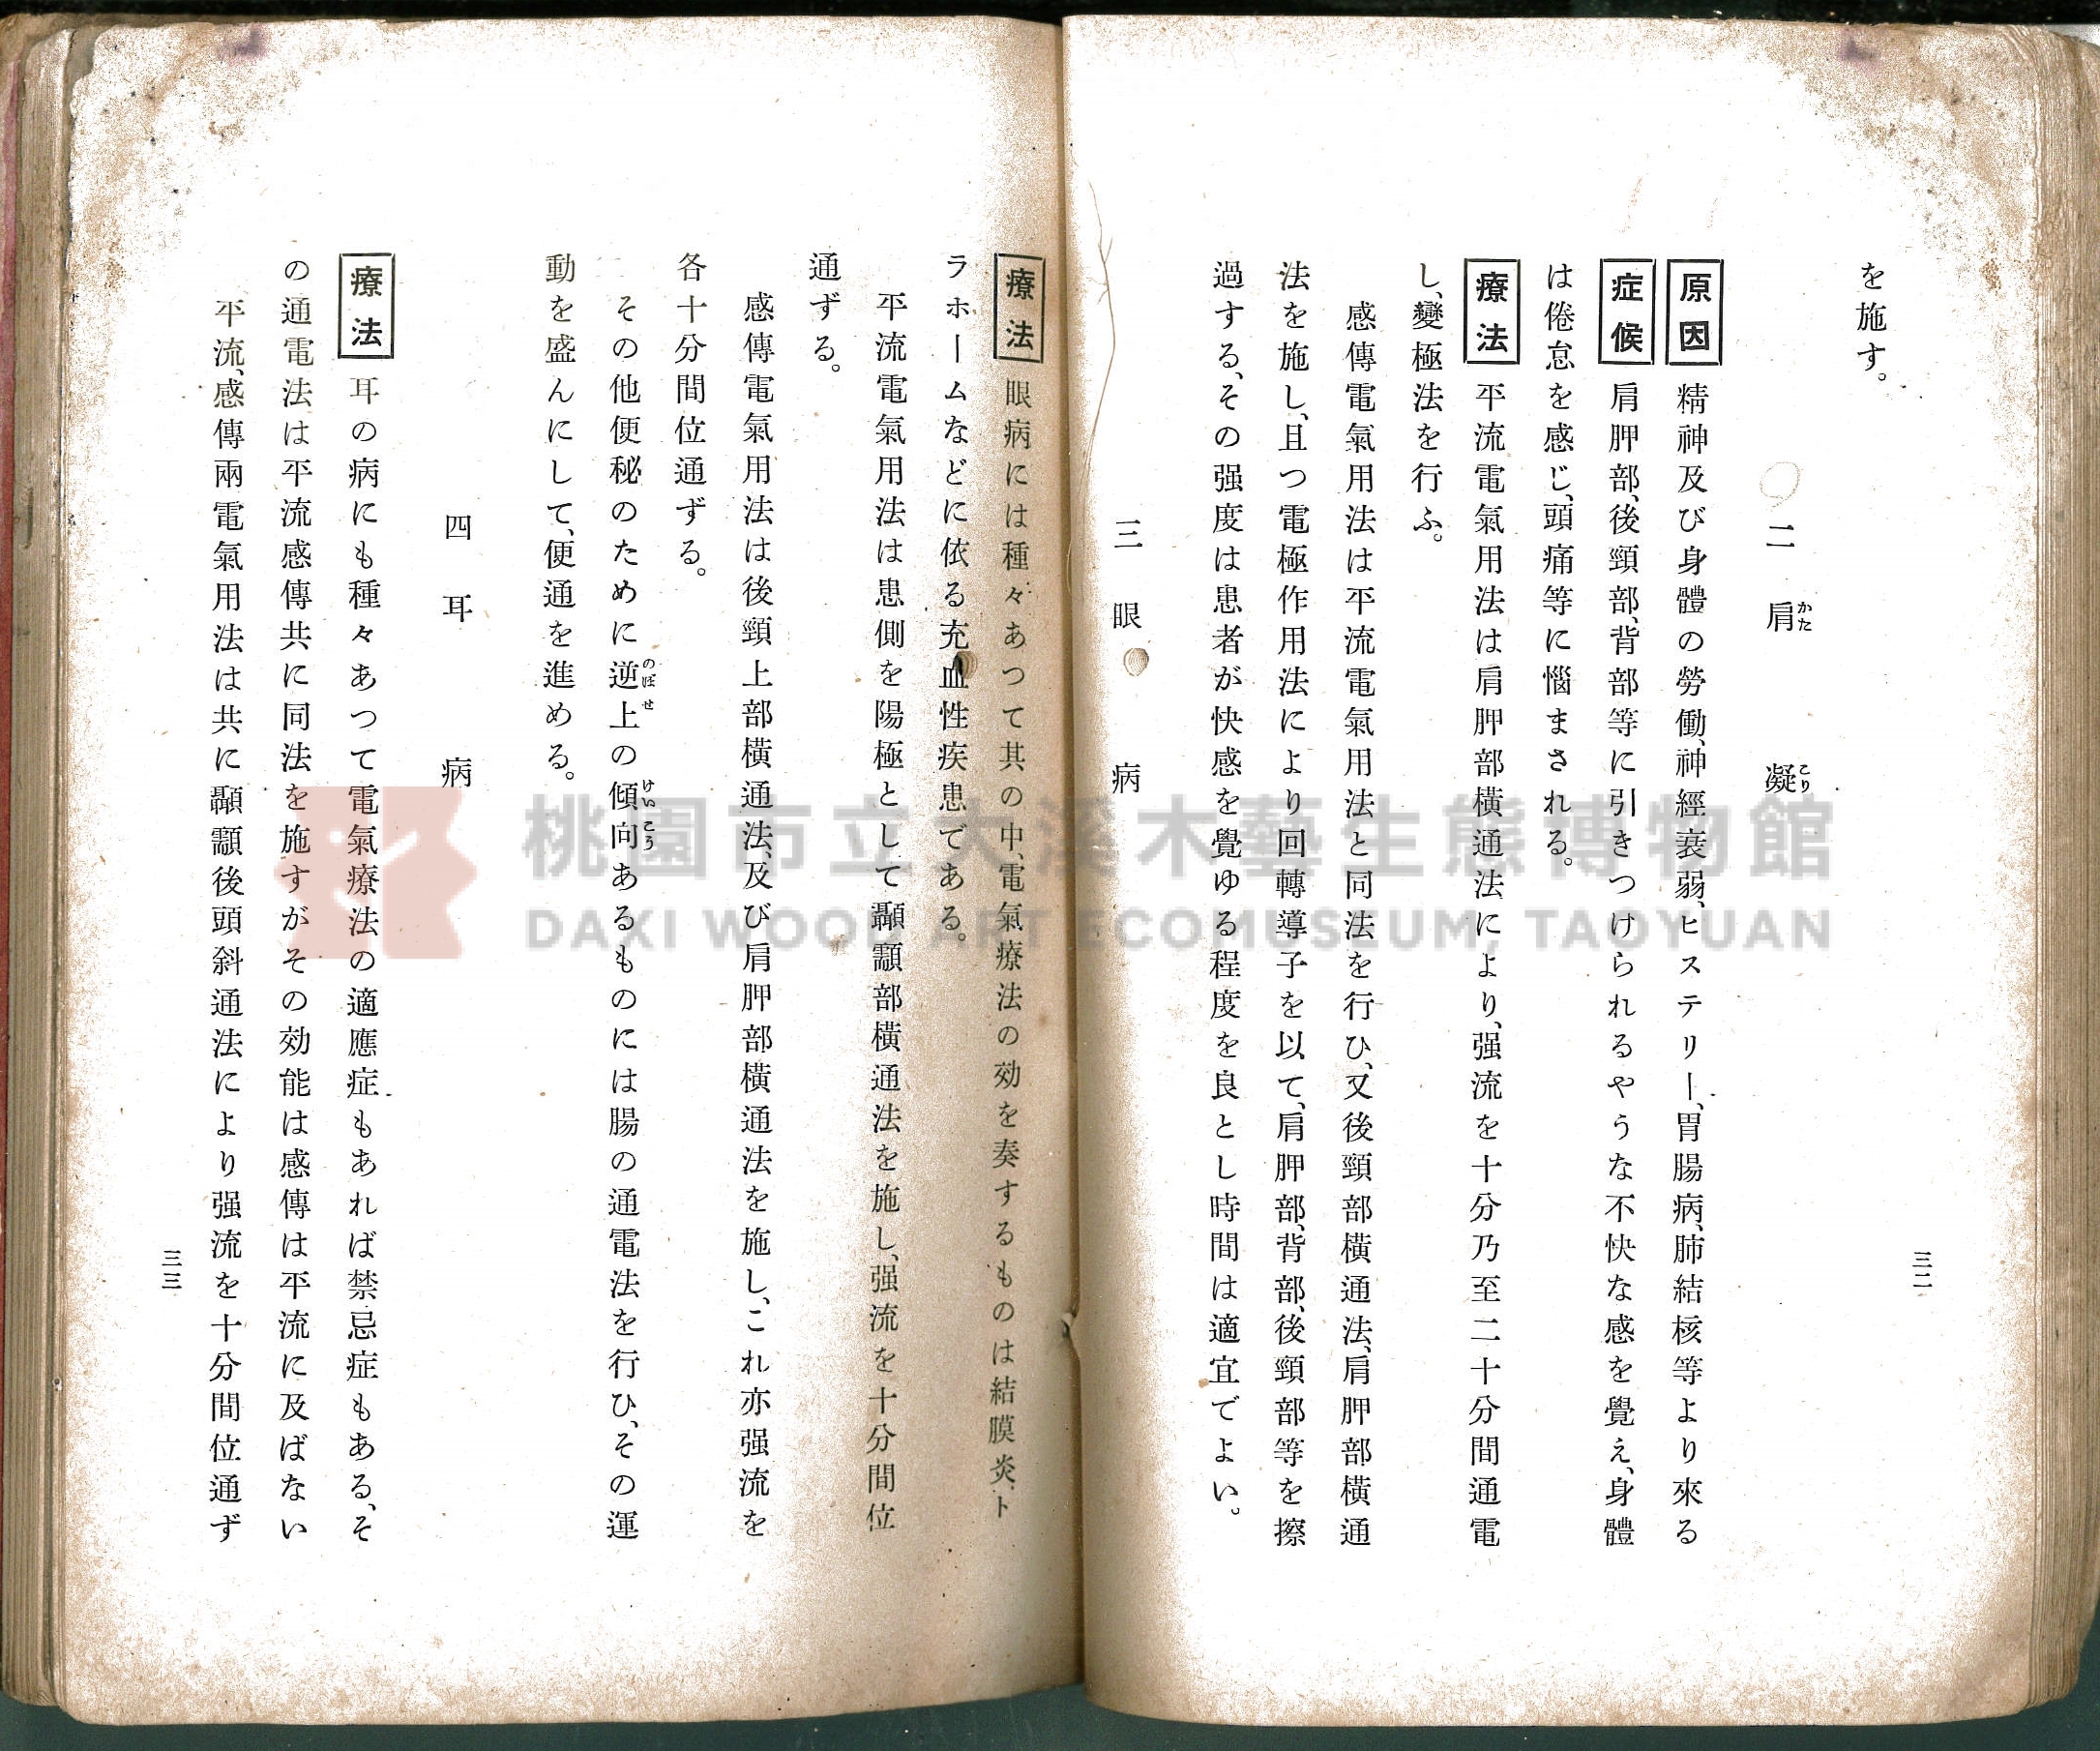 を施す。
二 肩 凝
かた こり
原因 精神及び身體の勞働、神經衰弱、ヒステリー、胃腸病、肺結核等より來る
症候 肩胛部、後頸部、背部等に引きつけられるやうな不快な感を覺え、身體
は倦怠を感じ、頭痛等に惱まされる。
療法 平流電氣用法は肩胛部橫通法により、强流を十分乃至二十分間通電
し、變極法を行ふ。
感傳電氣用法は平流電氣用法と同法を行ひ、又後頸部橫通法、肩胛部橫通
法を施し、且つ電極作用法により回轉導子を以て、肩胛部、背部、後頸部等を擦
過する、その强度は患者が快感を覺ゆる程度を良とし時間は適宜でよい。
三 眼 病
三二
療法 眼病には種々あつて其の中、電氣療法の効を奏するものは結膜炎、ト
ラホームなどに依る充血性疾患である。
平流電氣用法は患側を陽極として顳顬部橫通法を施し、强流を十分間位
通ずる。
感傳電氣用法は後頸上部橫通法、及び肩胛部橫通法を施し、これ亦强流を
各十分間位通ずる。
その他便秘のために逆上の傾向あるものには腸の通電法を行ひ、その運
のぼせ けいこう
動を盛んにして、便通を進める。
四 耳 病
療法 耳の病にも種々あつて電氣療法の適應症もあれば禁忌症もある、そ
の通電法は平流感傳共に同法を施すがその効能は感傳は平流に及ばない
平流、感傳兩電氣用法は共に顳顬後頭斜通法により强流を十分間位通ず
三三
桃園市立大溪木藝生態博物館
DAXI WOOD ART ECOMUSEUM, TAOYUAN